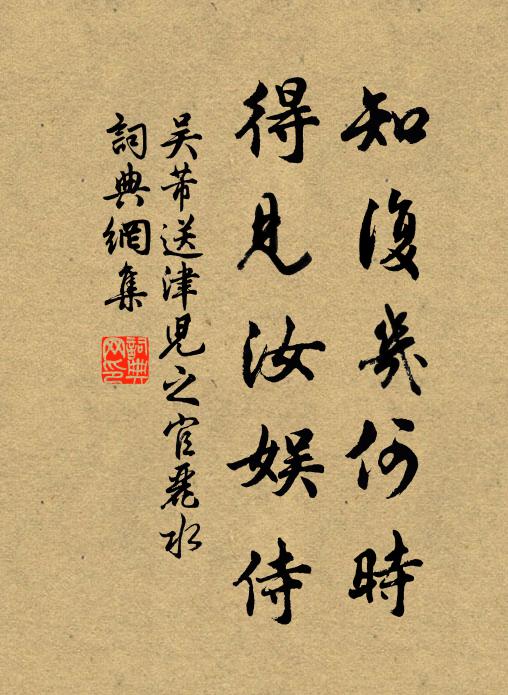 知復幾何時
得見汝娛侍
吴芾送津兒之官麗水
詞典網集
詞典
网印